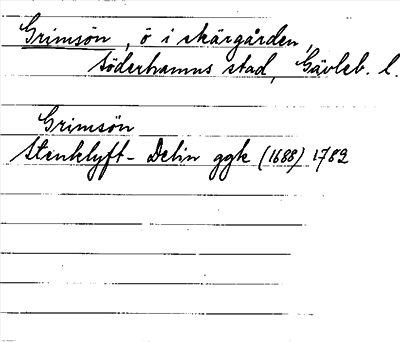 Grimsön, ö i skärgården,
Söderhamns stad, Gävleb. l.
Grimsön
Stenklyft-Delin ggk (1688) 1782